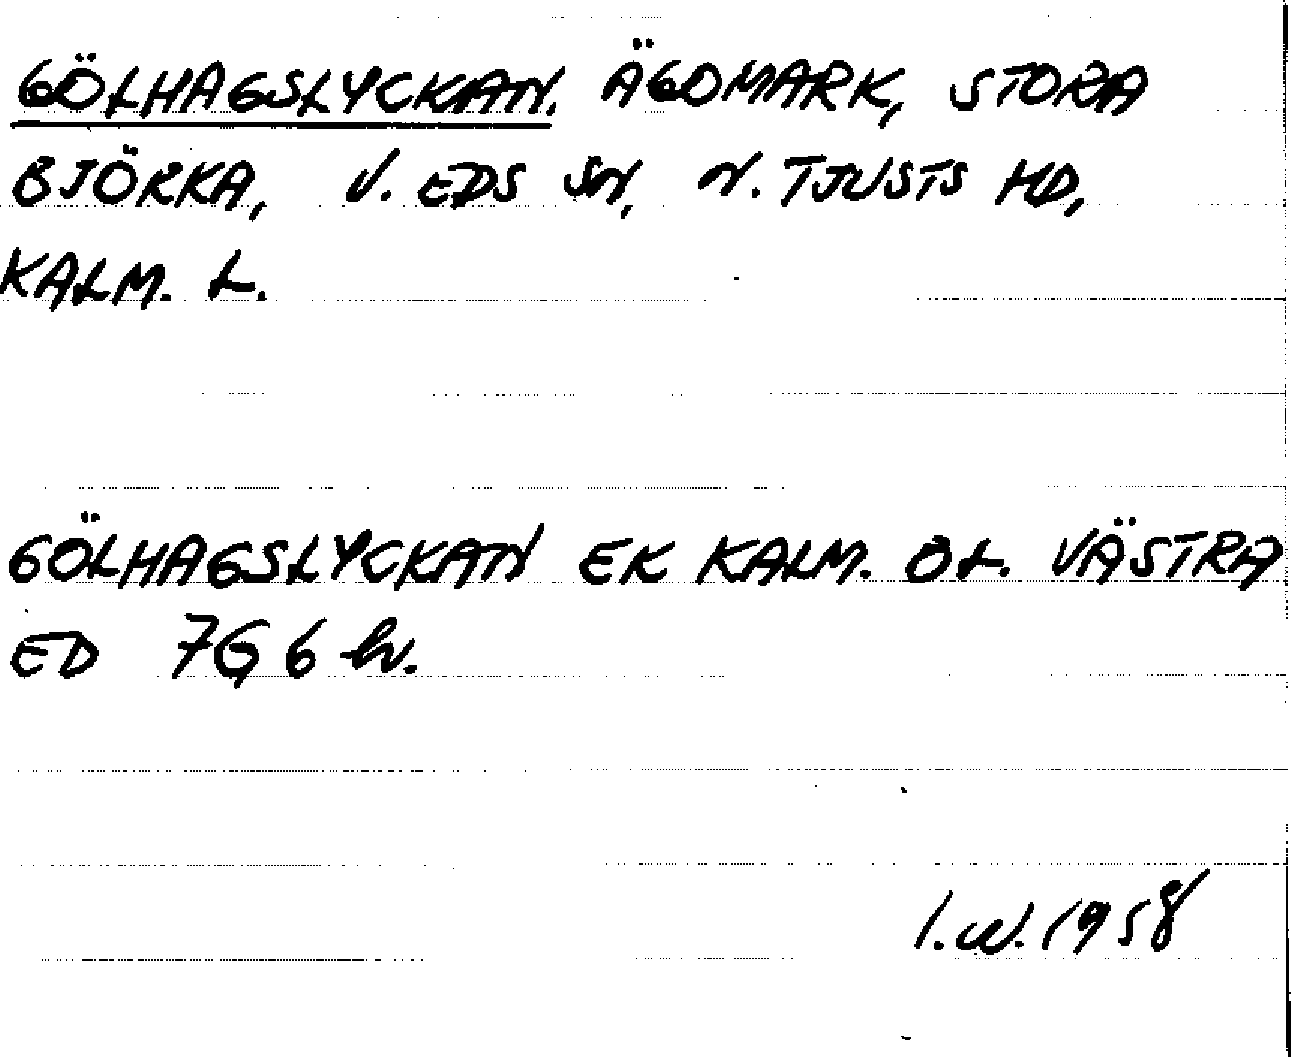 GÖLHAGSLYCKAN. ÄGOMARK, STORA
BJÖRKA, V. EDS SN, N. TJUSTS HD,
KALM. L.
GÖLHAGSLYCKAN EK KALM. ÖL. VÄSTRA
ED 7G 6 h.
I.W. 1958